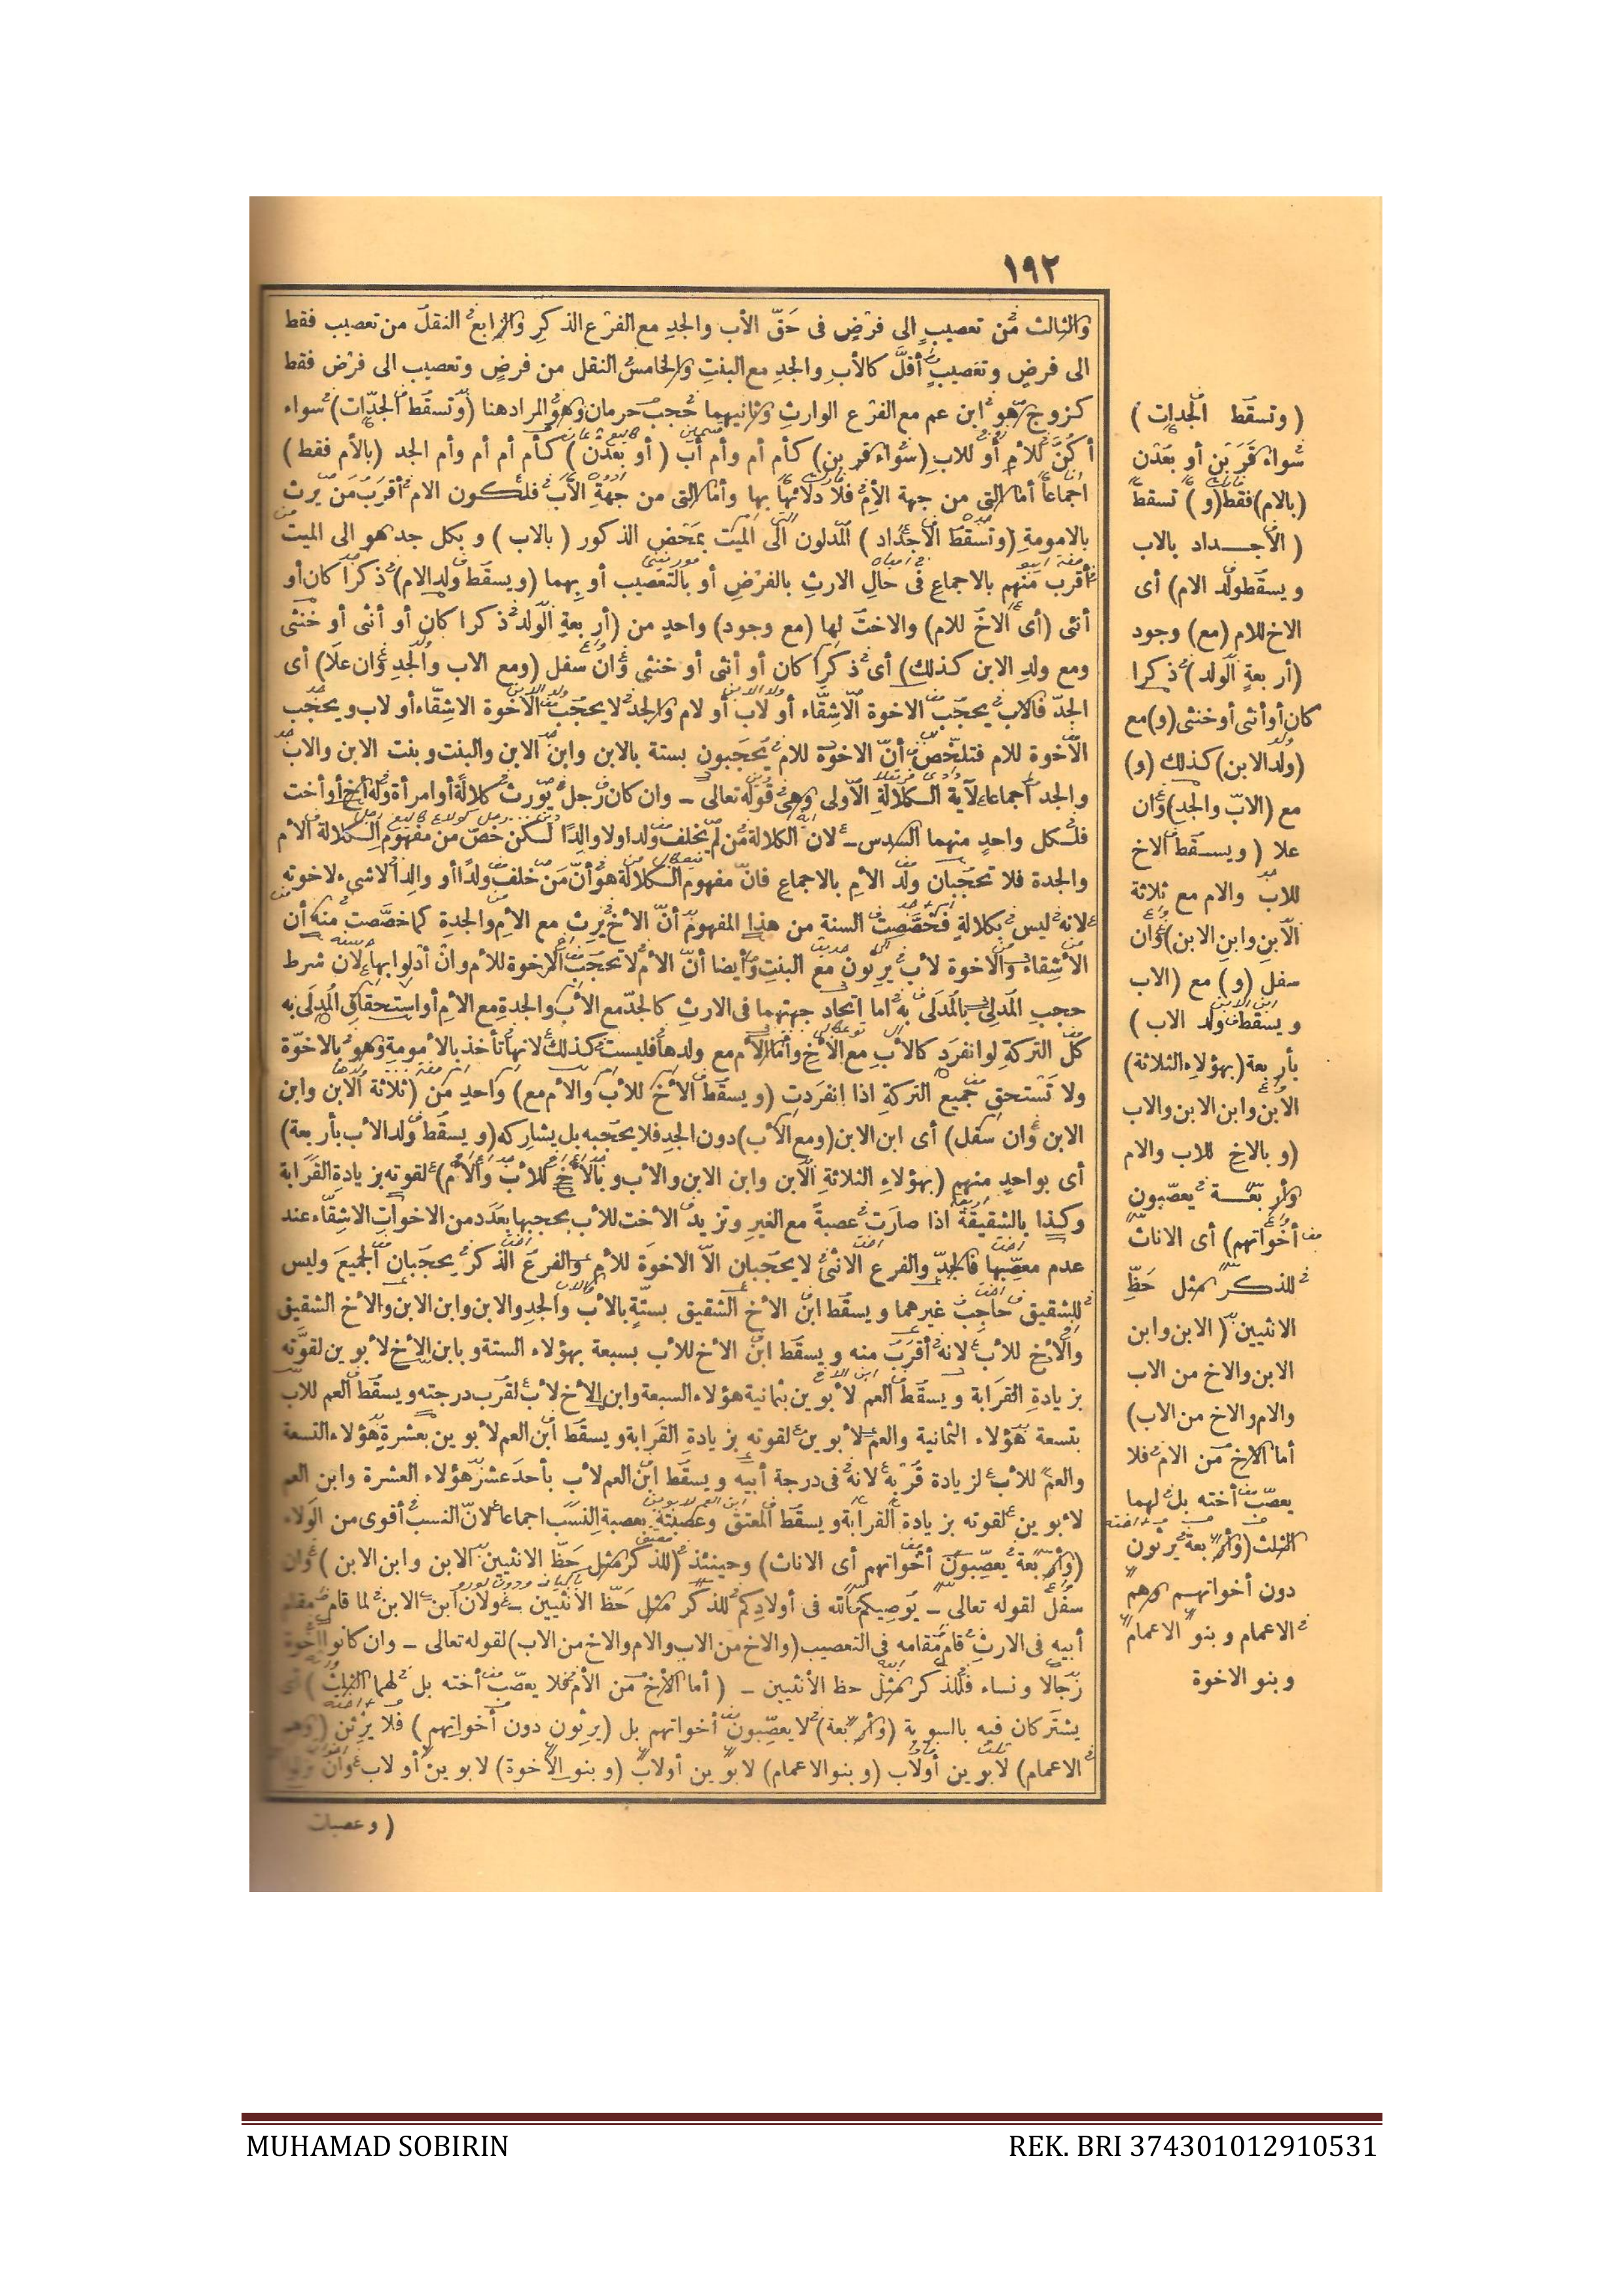 ١٩٢
والثالث من تعصيب الى فرض فى حق الأب والجد مع الفرع الذكر والرابع النقل من تعصيب فقط
الى فرض وتعصيب أقل كالأب والجد مع البنت والخامس النقل من فرض وتعصيب الى فرض فقط
كزوج هو ابن عم مع الفرع الوارث وثانيهما حجب حرمان وهو المراد هنا (وتسقط الجدات) سواء
أكن للأم أو للاب (سواء قربن) كأم أم وأم أب (أو بعدن) كأم أم أم وأم الجد (بالأم فقط)
اجماعا أما التى من جهة الأم فلادلائها بها وأما التى من جهة الأب فلكون الام أقرب من يرث
بالامومة (وتسقط الأجداد) المدلون الى الميت بمحض الذكور (بالاب) وبكل جد هو الى الميت
أقرب منهم بالاجماع فى حال الارث بالفرض أو بالتعصيب أو بهما (ويسقط ولد الام) ذكرا كان أو
أنثى (أى الاخ للام) والاخت لها (مع وجود) واحد من (أربعة الولد) ذكرا كان أو أنثى أو خنثى
ومع ولد الابن كذلك) أى ذكرا كان أو أنثى أو خنثى وان سفل (ومع الاب والجد وان علا) أى
الجد فالاب يحجب الاخوة الأشقاء أو لاب أو لام والجد لا يحجب الاخوة الاشقاء أو لاب ويحجب
الأخوة للام فتلخص أن الاخوة للام يحجبون بستة بالابن وابن الابن والبنت وبنت الابن والاب
والجد اجماعا لآية الكلالة الأولى وهى قوله تعالى - وان كان رجل يورث كلالة أو امرأة وله أخ أو أخت
فلكل واحد منهما السدس - لان الكلالة من لم يخلف ولدا ولا والدا لكن خص من مفهوم الكلالة الأم
والجدة فلا تحجبان ولد الأم بالاجماع فان مفهوم الكلالة هو أن من خلف ولدا أو والدا لاشىء لاخوته
لانه ليس بكلالة فخصصت السنة من هذا المفهوم أن الأخ يرث مع الأم والجدة كما خصصت منه أن
الأشقاء والاخوة لأب يرثون مع البنت وأيضا أن الأم لا تحجب الاخوة للأم وان أدلوا بها لان شرط
حجب المدلى بالمدلى به اما اتحاد جهتهما فى الارث كالجد مع الأب والجدة مع الأم أو استحقاق المدلى به
كل التركة لو انفرد كالأب مع الأخ وأما الأم مع ولدها فليست كذلك لانها تأخذ بالأمومة وهو بالاخوة
ولا تستحق جميع التركة اذا انفردت (ويسقط الأخ للأب والأم مع) واحد من (ثلاثة الابن وابن
الابن وان سفل) أى ابن الابن (ومع الأب) دون الجد فلا يحجبه بل يشاركه (ويسقط ولد الأب بأربعة)
أى بواحد منهم (بهؤلاء الثلاثة) الابن وابن الابن والأب وبالأخ للأب والأم) لقوته بزيادة القرابة
وكذا بالشقيقة اذا صارت عصبة مع الغير وتزيد الأخت للأب بحجبها بعدد من الاخوات الاشقاء عند
عدم معصبها فالجد والفرع الانثى لا يحجبان الا الاخوة للأم والفرع الذكر يحجبان الجميع وليس
للشقيق حاجب غيرهما ويسقط ابن الأخ الشقيق بستة بالأب والجد والابن وابن الابن والأخ الشقيق
والأخ للأب لانه أقرب منه ويسقط ابن الأخ للأب بسبعة بهؤلاء الستة وبابن الأخ لأبوين لقوته
بزيادة القرابة ويسقط العم لأبوين بثمانية هؤلاء السبعة وابن الأخ لأب لقرب درجته ويسقط العم للاب
بتسعة هؤلاء الثمانية والعم لأبوين لقوته بزيادة القرابة ويسقط ابن العم لأبوين بعشرة هؤلاء التسعة
والعم للأب لزيادة قربه لانه فى درجة أبيه ويسقط ابن العم لأب بأحد عشر هؤلاء العشرة وابن العم
لأبوين لقوته بزيادة القرابة ويسقط المعتق وعصبته بعصبة النسب اجماعا لان النسب أقوى من الولاء
(وأربعة يعصبون أخواتهم أى الاناث) وحينئذ (للذكر مثل حظ الانثيين الابن وابن الابن) وان
سفل لقوله تعالى - يوصيكم الله فى أولادكم للذكر مثل حظ الأنثيين - ولان ابن الابن لما قام مقام
أبيه فى الارث قام مقامه فى التعصيب (والاخ من الاب والام والاخ من الاب) لقوله تعالى - وان كانوا اخوة
رجالا ونساء فللذكر مثل حظ الأنثيين - (أما الأخ من الأم فلا يعصب أخته بل لهما الثلث)
يشتركان فيه بالسوية (وأربعة) لا يعصبون أخواتهم بل (يرثون دون أخواتهم) فلا يرثن (وهم
الاعمام) لابوين أو لاب (وبنو الاعمام) لابوين أو لاب (وبنو الأخوة) لابوين أو لاب وان نزلوا
(وعصبات
(وتسقط الجدات)
سواء قربن أو بعدن
(بالام) فقط (و) تسقط
(الأجداد بالاب
ويسقط ولد الام) أى
الاخ للام (مع) وجود
(أربعة الولد) ذكرا
كان أو أنثى أو خنثى (و) مع
(ولد الابن) كذلك (و)
مع (الاب والجد) وان
علا (ويسقط الاخ
للاب والام مع ثلاثة
الأبن وابن الابن) وان
سفل (و) مع (الاب
ويسقط ولد الاب)
بأربعة (بهؤلاء الثلاثة)
الابن وابن الابن والاب
(وبالاخ للاب والام
وأربعة يعصبون
أخواتهم) أى الاناث
للذكر مثل حظ
الانثيين (الابن وابن
الابن والاخ من الاب
والام والاخ من الاب)
أما الاخ من الام فلا
يعصب أخته بل لهما
الثلث (وأربعة يرثون
دون أخواتهم وهم
الاعمام وبنو الاعمام
وبنو الاخوة
MUHAMAD SOBIRIN REK. BRI 374301012910531